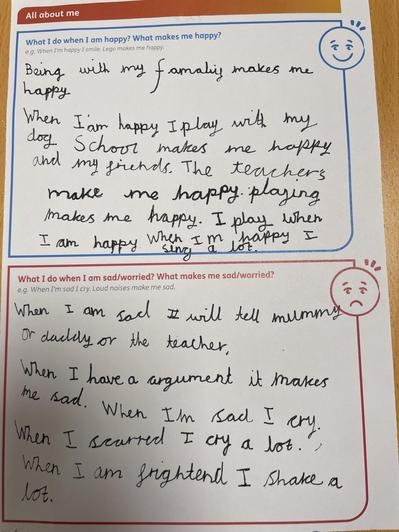 All about me
What I do when I am happy? What makes me happy?
e.g. When I'm happy I smile. Lego makes me happy.
Being with my famaliy makes me
happy
When I'am happy I play with my
dog School makes me happy
and my friends. The teachers
make me happy. playing
makes me happy. I play when
I am happy When I'm happy I
sing a lot.
What I do when I am sad/worried? What makes me sad/worried?
e.g. When I'm sad I cry. Loud noises make me sad.
When I am sad I will tell mummy
or daddy or the teacher.
When I have a argument it makes
me sad. When I'm sad I cry.
When I scarred I cry a lot.
When I am frightend I shake a
lot.